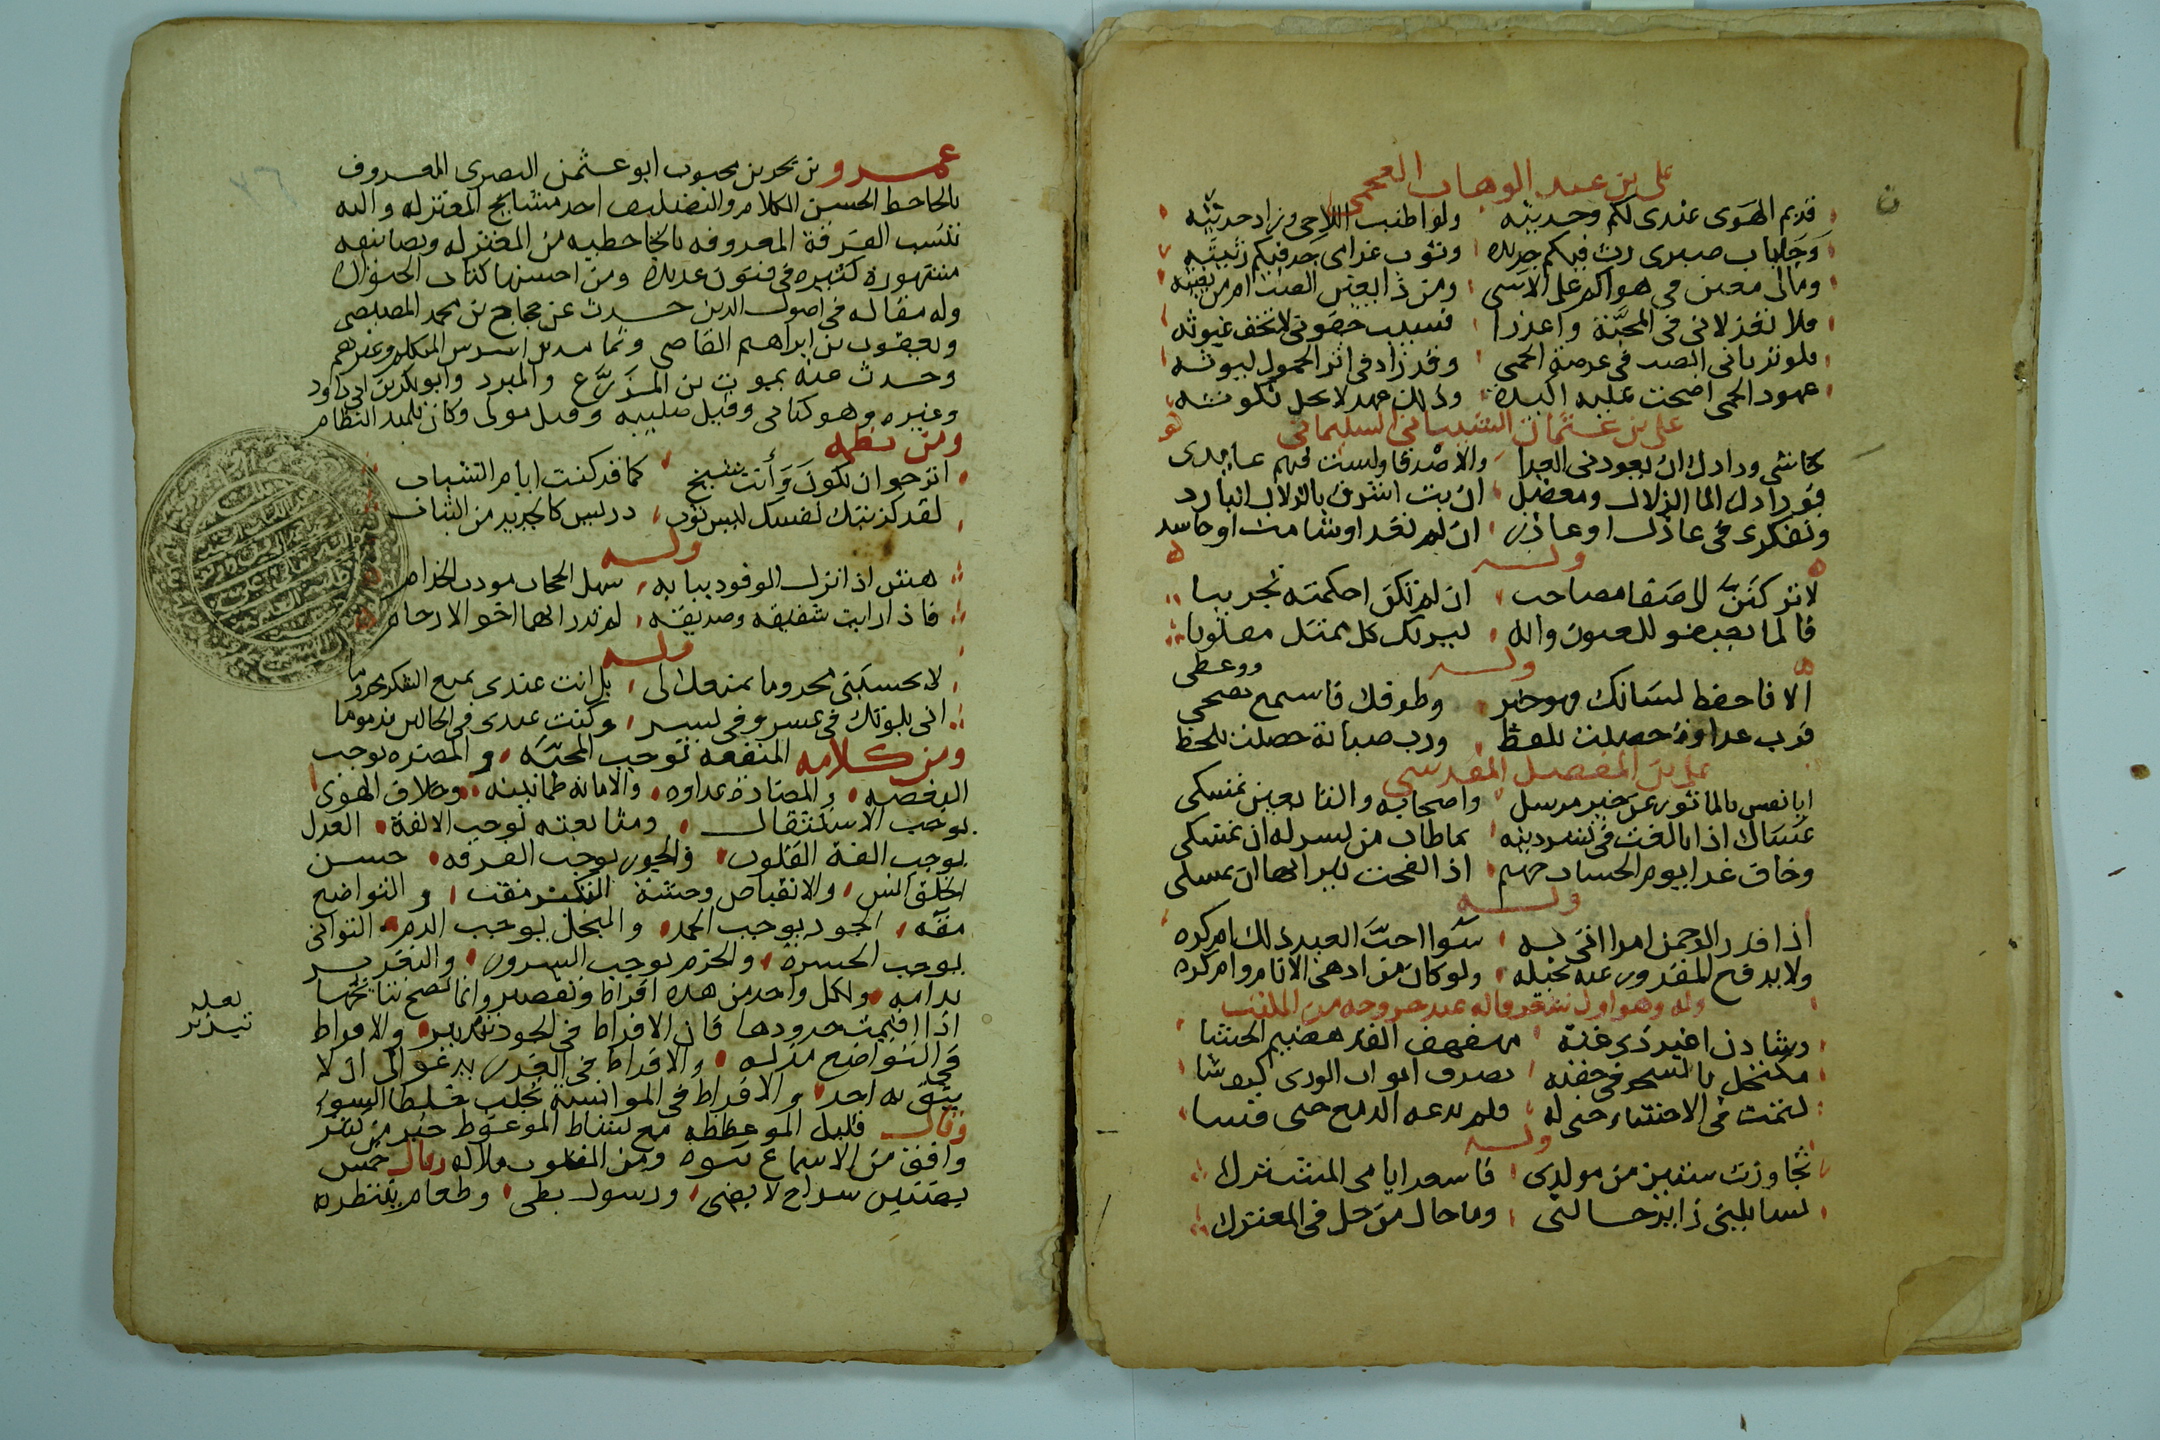 على بن عبد الوهاب العجمى
قديم الهوى عندى لكم وحديثه ولو اطنب اللاحى وزاد حديثه
وجلباب صبرى رث فيكم جديده وثوب غرامى جد فيكم رثيثه
ومالى معين فى هواكم على الاسى ومن ذا يعين الصب ام من يغيثه
فلا تعذلانى فى المحبة واعذرا
فلو ترياني الصب فى عرصة الحمى وقد زاد فى اثر الحمول لبوثه
عهود الحمى اضحت عليه اكيدة وذلك عهد لا يحل نكوثه
على بن عثمان السليمانى
والاصدقا ولست فيهم عايدى
ان بت اشرق بالزلال البارد
وتفكرى فى عاذل او عاذر ان لم تعد او شامت او حاسد
وله
لا تركنن لاصفا مصاحب ان لم تكن احكمته تجريبا
فالما يصفو للعيون وانه ليريك كل ممثل مقلوبا
وله
ووعظى
الا فاحفظ لسانك فهو خير وطرفك فاسمع نصحى
فرب عداوة حصلت بلفظ ورب صبابة حصلت بلحظ
على بن المفضل المقدسى
ايا نفس بالماثور عن خير مرسل واصحابه والتابعين تمسكى
عساك اذا بالغت فى نشر دينه بما طاب من نشر له ان تمسكى
وخافى غدا يوم الحساب جهنم اذا لفحت نيرانها ان تمسكى
وله
اذا قدر الرحمن امرا اتى به سوا احب العبد ذلك ام كره
ولا يدفع المقدور عنه بحيلة ولو كان من ادهى الانام وامكره
وله وهو اول شعر قاله عند خروجه من المكتب
وشادن اغيد ذى غنة مهفهف القد هضيم الحشا
مكتحل بالسحر فى جفنه يصرف ابواب الورى كيف شا
فلم يدعه الدمع حتى فشا
وله
تجاوزت ستين من مولدى فاسعد ايامى المشترك
يسايلنى زايرى حالتى وما حال من حل فى المعترك
عمرو بن بحر بن محبوب ابو عثمن البصرى المعروف
بالجاحظ الحسن الكلام والتصانيف احد مشايخ المعتزله واليه
تنسب الفرقة المعروفه بالجاحظيه من المعتزله وتصانيفه
مشهورة كثيره فى فنون عديده ومن احسنها كتاب الحيوان
وله مقاله فى اصول الدين حدث عن حجاج بن محمد المصيصى
ويعقوب بن ابراهيم القاضى وثمامه بن اشرس المتكلم وغيرهم
وحدث عنه يموت بن المزرع والمبرد وابو بكر بن ابى داود
وغيره وهو كنانى وقيل صليبه وقيل مولى وكان تلميذ النظام
ومن نظمه
اترجو ان تكون وانت شيخ كما قد كنت ايام الشباب
لقد كذبتك نفسك ليس ثوب دريس كالجديد من الثياب
وله
هش اذا نزل الوفود ببابه سهل الحجاب مودب الخدام
فاذا رايت شقيقه وصديقه لم تدر ايهما اخو الارحام
وله
لا تحسبنى محروما بمنعك لى بل انت عندى بمنع الشكر محروما
انى بلوتك فى عسر وفى يسر وكنت عندى فى الحالين مذموما
ومن كلامه المنفعه توجب المحبة والمضره توجب
البغضه والمضادة عداوه والامانه طمانينه وخلاف الهوى
يوجب الاستثقال ومتابعته توجب الالفة العدل
يوجب الفة القلوب والجور يوجب الفرقه حسن
الخلق انس والانقباض وحشة التكبر مقت والتواضع
مقه الجود يوجب الحمد والبخل يوجب الذم التوانى
يوجب الحسرة والحزم يوجب السرور والتغرير
ندامه ولكل واحد من هذه افراط وتقصير وانما تصح نتايجها
اذا اقيمت حدودها فان الافراط فى الجود تبذير والافراط
فى التواضع مذله والافراط فى الغدر يدعو الى ان لا
يثق به احد والافراط فى الموانسة يجلب خلطا السوء
وقال قليل الموعظه مع نشاط الموعوظ خير من كثير
وافق من الاسماع نبوه ومن القلوب ملاله وقال خمس
يضنين سراج لا يضى ورسول بطى وطعام ينتظر به
لعله
تبذير